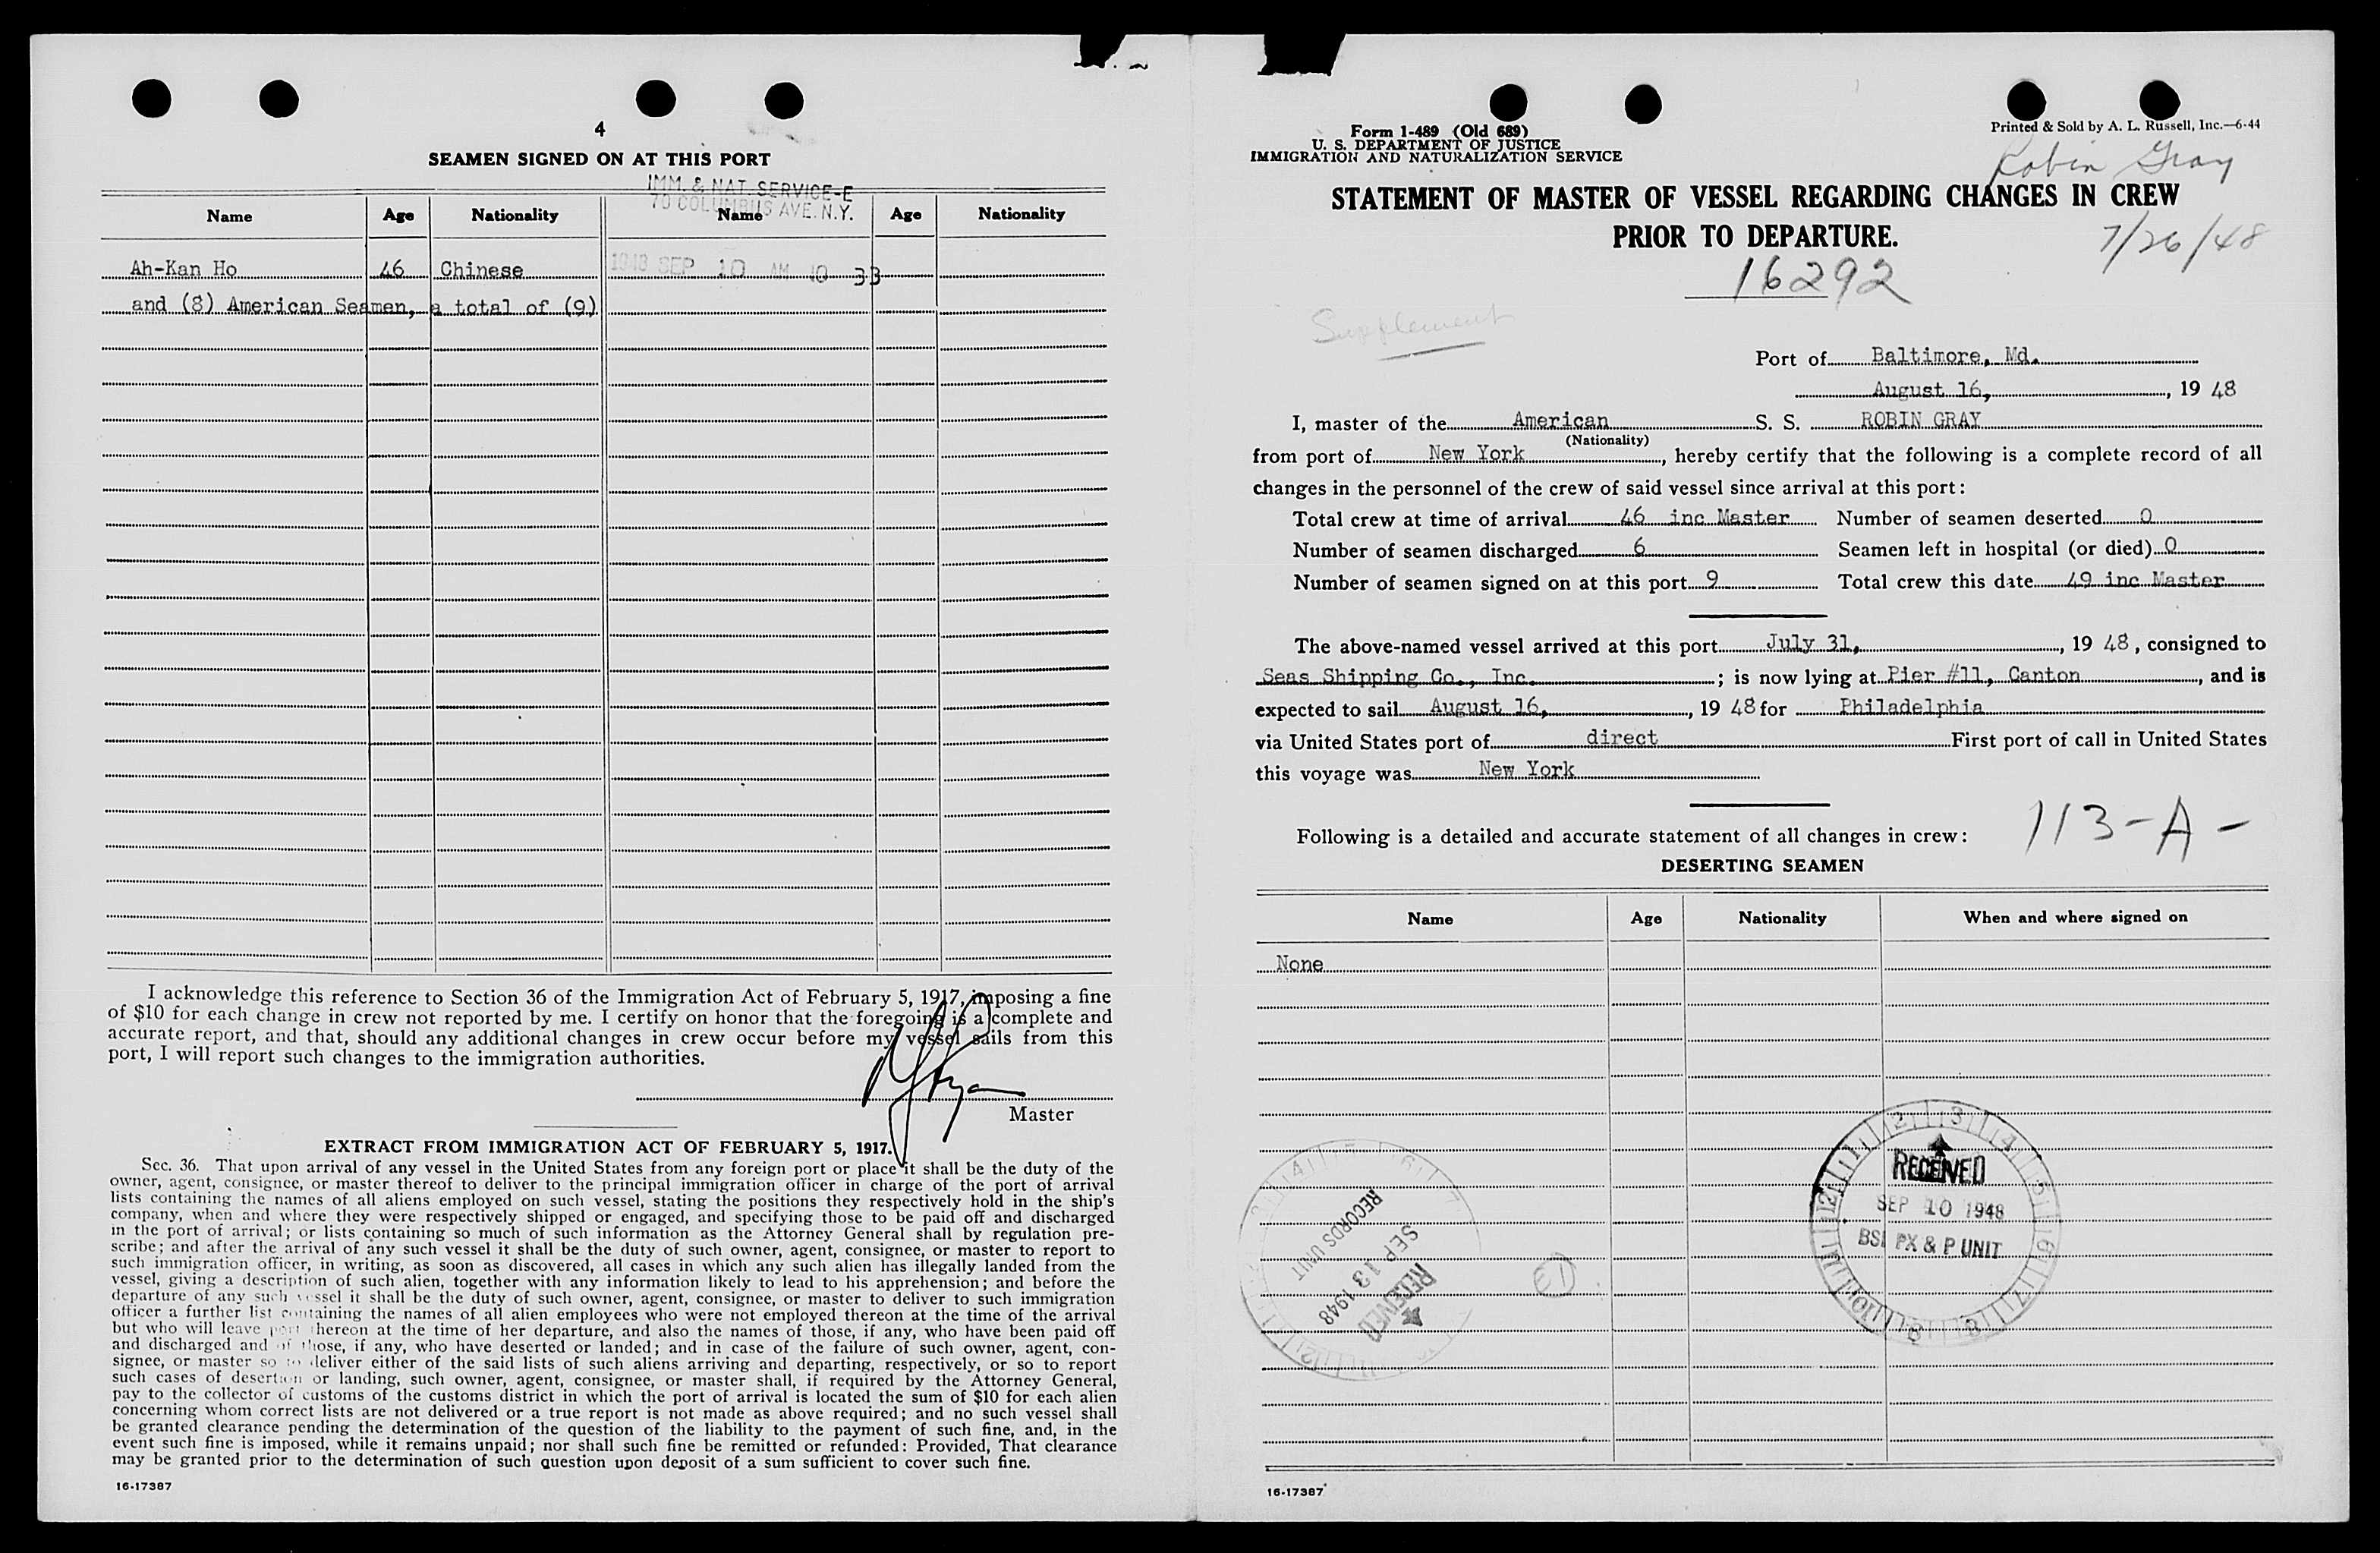 4
SEAMEN SIGNED ON AT THIS PORT
IMM. & NAT. SERVICE-E
70 COLUMBUS AVE. N.Y.
Name Age Nationality Name Age Nationality
1948 SEP 10 AM 10 33
Ah-Kan Ho 46 Chinese
and (8) American Seamen, a total of (9)
I acknowledge this reference to Section 36 of the Immigration Act of February 5, 1917, imposing a fine
of $10 for each change in crew not reported by me. I certify on honor that the foregoing is a complete and
accurate report, and that, should any additional changes in crew occur before my vessel sails from this
port, I will report such changes to the immigration authorities.
Master
EXTRACT FROM IMMIGRATION ACT OF FEBRUARY 5, 1917.
Sec. 36. That upon arrival of any vessel in the United States from any foreign port or place it shall be the duty of the
owner, agent, consignee, or master thereof to deliver to the principal immigration officer in charge of the port of arrival
lists containing the names of all aliens employed on such vessel, stating the positions they respectively hold in the ship's
company, when and where they were respectively shipped or engaged, and specifying those to be paid off and discharged
in the port of arrival; or lists containing so much of such information as the Attorney General shall by regulation pre-
scribe; and after the arrival of any such vessel it shall be the duty of such owner, agent, consignee, or master to report to
such immigration officer, in writing, as soon as discovered, all cases in which any such alien has illegally landed from the
vessel, giving a description of such alien, together with any information likely to lead to his apprehension; and before the
departure of any such vessel it shall be the duty of such owner, agent, consignee, or master to deliver to such immigration
officer a further list containing the names of all alien employees who were not employed thereon at the time of the arrival
but who will leave port thereon at the time of her departure, and also the names of those, if any, who have been paid off
and discharged and of those, if any, who have deserted or landed; and in case of the failure of such owner, agent, con-
signee, or master so to deliver either of the said lists of such aliens arriving and departing, respectively, or so to report
such cases of desertion or landing, such owner, agent, consignee, or master shall, if required by the Attorney General,
pay to the collector of customs of the customs district in which the port of arrival is located the sum of $10 for each alien
concerning whom correct lists are not delivered or a true report is not made as above required; and no such vessel shall
be granted clearance pending the determination of the question of the liability to the payment of such fine, and, in the
event such fine is imposed, while it remains unpaid; nor shall such fine be remitted or refunded: Provided, That clearance
may be granted prior to the determination of such question upon deposit of a sum sufficient to cover such fine.
16-17387
Form 1-489 (Old 689)
U. S. DEPARTMENT OF JUSTICE
IMMIGRATION AND NATURALIZATION SERVICE
Printed & Sold by A. L. Russell, Inc.—6-44
Robin Gray
STATEMENT OF MASTER OF VESSEL REGARDING CHANGES IN CREW
PRIOR TO DEPARTURE.
7/26/48
16292
Supplement
Port of Baltimore, Md.
August 16, , 19 48
I, master of the American S. S. ROBIN GRAY
(Nationality)
from port of New York , hereby certify that the following is a complete record of all
changes in the personnel of the crew of said vessel since arrival at this port:
Total crew at time of arrival 46 inc Master Number of seamen deserted 0
Number of seamen discharged 6 Seamen left in hospital (or died) 0
Number of seamen signed on at this port 9 Total crew this date 49 inc Master
The above-named vessel arrived at this port July 31, , 19 48, consigned to
Seas Shipping Co., Inc. ; is now lying at Pier #11, Canton , and is
expected to sail August 16, , 19 48 for Philadelphia
via United States port of direct First port of call in United States
this voyage was New York
Following is a detailed and accurate statement of all changes in crew:
113-A-
DESERTING SEAMEN
Name Age Nationality When and where signed on
None
RECEIVED
SEP 10 1948
BSI PX & P UNIT
RECORDS UNIT
SEP 13 1948
RECEIVED
16-17387